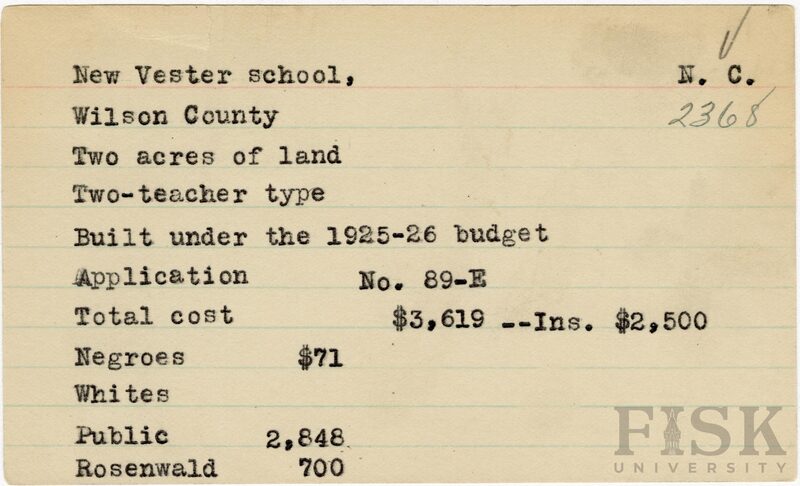 New Vester school, N. C.
Wilson County 2368
Two acres of land
Two-teacher type
Built under the 1925-26 budget
Application No. 89-E
Total cost $3,619 --Ins. $2,500
Negroes $71
Whites
Public 2,848
Rosenwald 700
FISK
UNIVERSITY